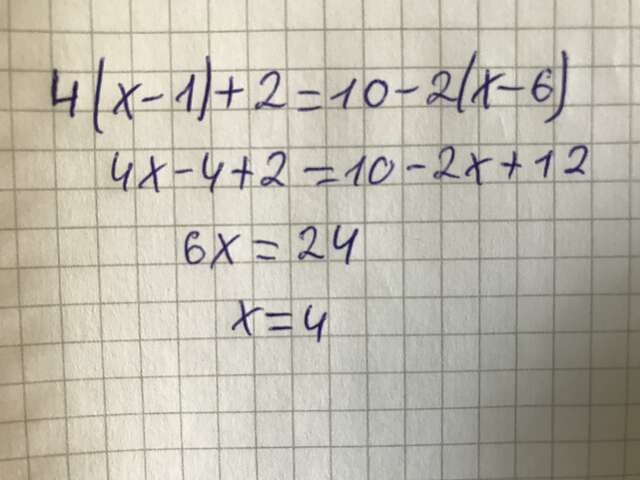 4(x-1)+2=10-2(x-6)
4x-4+2=10-2x+12
6x=24
x=4